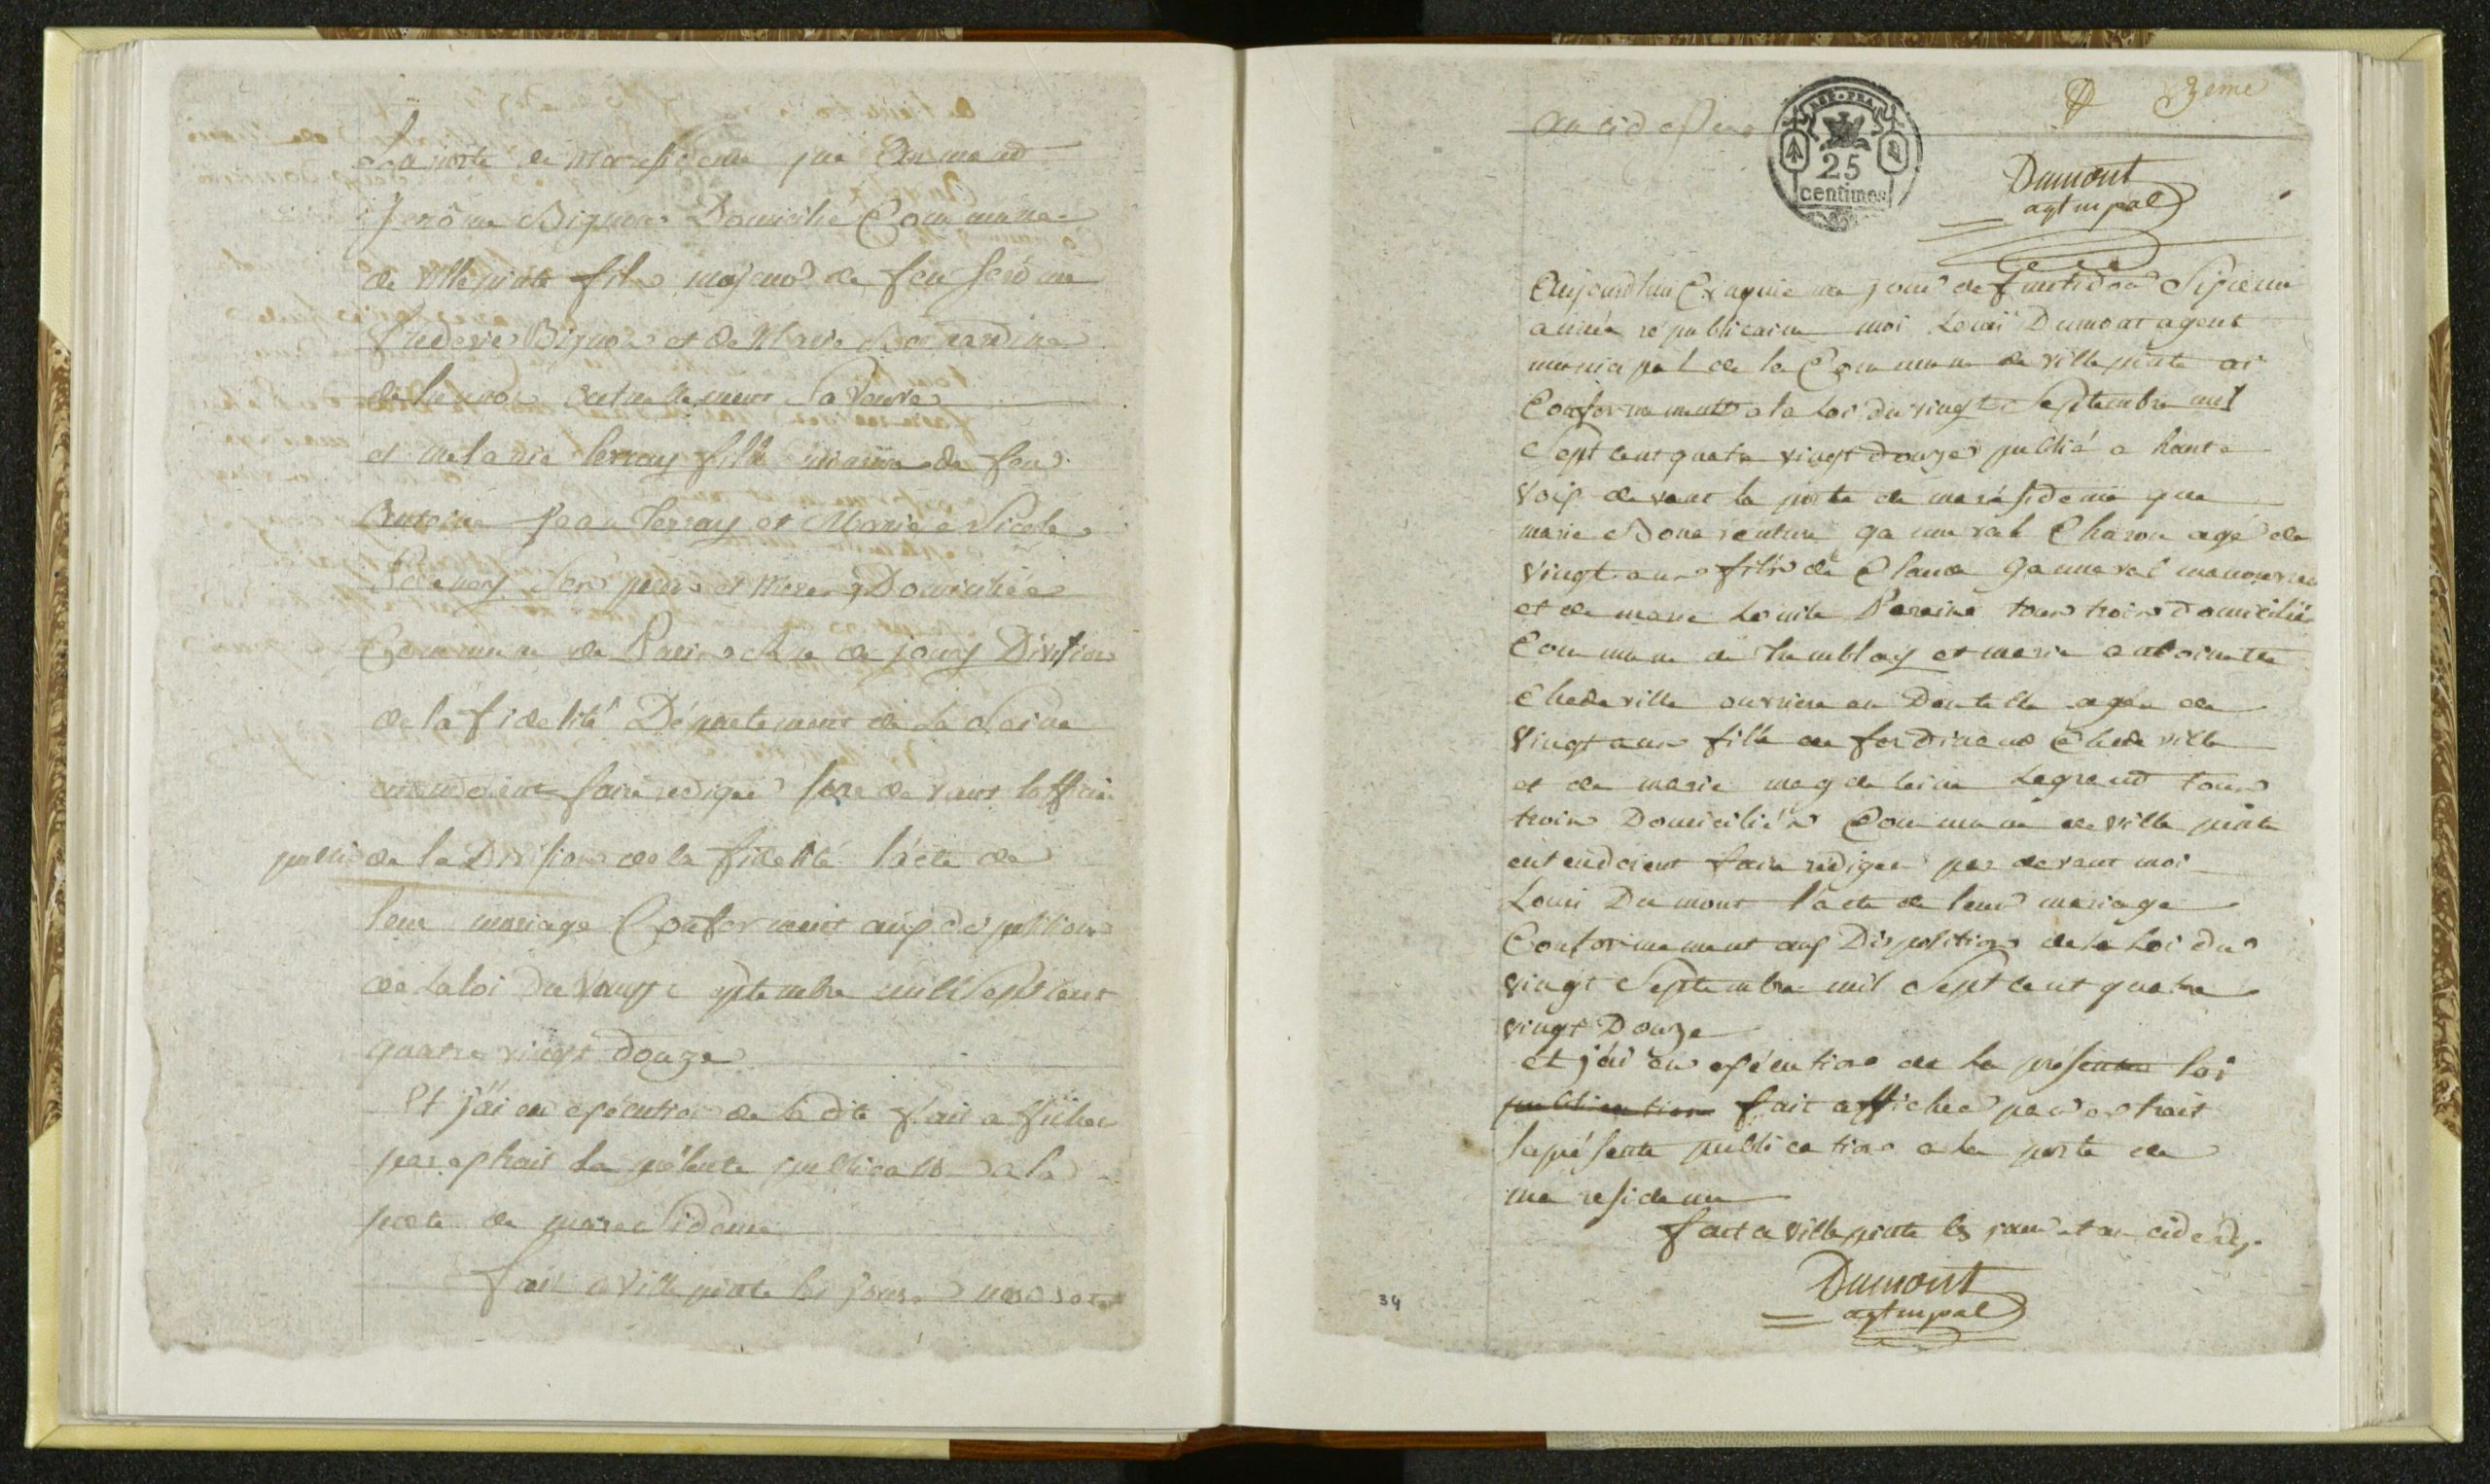 La porte de ma residence que Armand
Jerôme Bignon Domicilié Commune
de villepinte fils majeur de feu Jerôme
frederic Bignon et de Marie Bernardine
de hennot actuellement sa veuve
et melanie terray fille mineure de feu
Antoine Jean Terray et Marie Nicole
Perenay ses pere et mere Domiciliée
Commune de Paris rue de jouy Division
de la fidelité Département de la Seine
entendoient faire rediger par devant l'officier
public de la Division de la fidelité l'acte de
leur mariage Conforment aux dispositions
de la loi du Vingt septembre mill sept cent
quatre vingt douze
Et j'ai en execution de la dite fait afficher
par extrait la présente publication a la
porte de ma residence
fait a villepinte les jours mois
an cid dessus
3eme
REP. FRA.
25
centimes
Dumont
agt mpal
Aujourdhui Cinquieme jour de fructidor Sixieme
année republicaine moi Louis Dumont agent
municipal de la Commune de villepinte ai
Conformement a la Loi du vingt Septembre mil
Sept cent quatre vingt douze publié a haute
Voix devant la porte de ma residence que
marie Bonaventure ganneval Charon agé de
vingt ans fils de Claude ganneval manouvrier
et de marie Louise Pereine tous trois domiciliés
Commune de tremblay et marie antoinette
Chedeville ouvriere en Dentelle agée de
Vingt ans fille de ferdinand Chedeville
et de marie magdeleine Legrand tous
trois Domiciliés Commune de villepinte
entendoient faire rediger par devant moi
Louis Dumont l'acte de leur mariage
Conformement aux Dispositions de la Loi du
vingt Septembre mil Sept cent quatre
vingt Douze
et j'ai en exécution de la présente loi
publication fait afficher par extrait
la présente publication a la porte de
ma residence
fait a villepinte les jour et an cid des.
Dumont
agt mpal
34